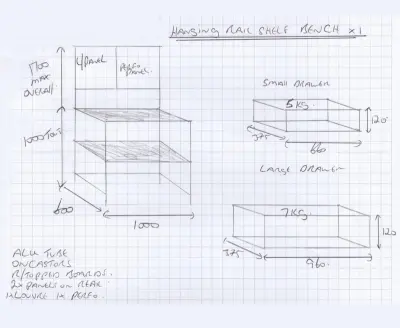 HANGING RAIL SHELF BENCH x1
1700
MAX
OVERALL.
L/PANEL
PERFO
PANEL.
1000
600
1000
SMALL DRAWER
5KG.
120.
375.
660
LARGE DRAWER
7KG.
120
375.
960.
ALU TUBE
ON CASTORS
R/TOPPED BOARDS.
2x PANELS ON REAR
1x LOUVRE 1x PERFO.